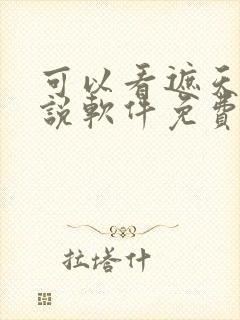 可以看遮天
説軟件免費
拉塔什